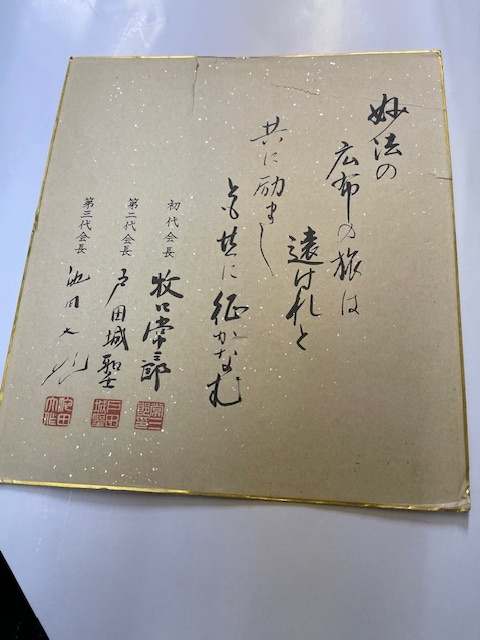 妙法の
広布の旅は
遠けれと
共に励まし
とも共に征かなむ
初代会長 牧口常三郎
常三郎印
第二代会長 戸田城聖
戸田城聖
第三代会長 池田大作
池田大作